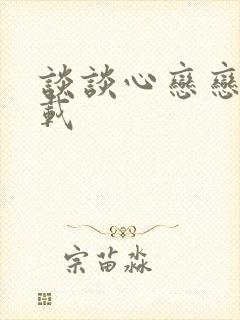 談談心戀戀
載
宗苗淼